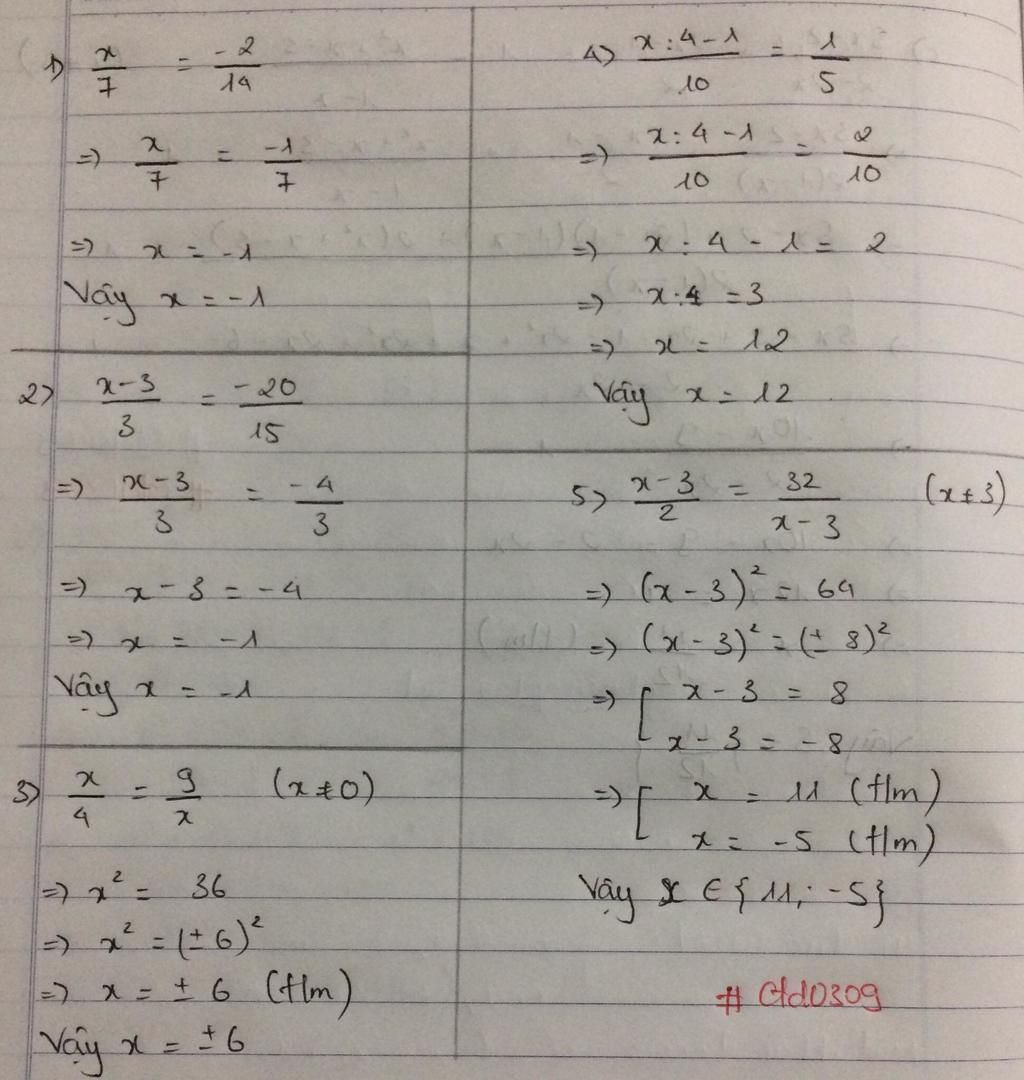 1) x/7 = -2/14
=) x/7 = -1/7
=) x = -1
Vậy x = -1
2) x-3/3 = -20/15
=) x-3/3 = -4/3
=) x - 3 = -4
=) x = -1
Vậy x = -1
3) x/4 = 9/x (x≠0)
=) x² = 36
=) x² = (± 6)²
=) x = ± 6 (t/m)
Vậy x = ±6
4) x:4-1/10 = 1/5
=) x:4-1/10 = 2/10
=) x : 4 - 1 = 2
=) x:4 = 3
=) x = 12
Vậy x = 12
5) x-3/2 = 32/x-3 (x≠3)
=) (x-3)² = 64
=) (x-3)² = (± 8)²
=) [ x-3 = 8
x-3 = -8
=) [ x = 11 (t/m)
x = -5 (t/m)
Vậy x ∈ {11; -5}
# Ctd0309